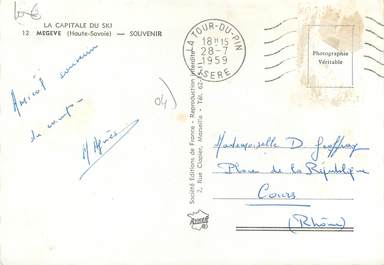 LA CAPITALE DU SKI
12 MEGEVE (Haute-Savoie) — SOUVENIR
LA TOUR-DU-PIN
18H15
28-7
1959
ISERE
Photographie
Véritable
Société Editions de France - Reproduction interdite
2, Rue Clapier, Marseille - Tél. 62-
Amical souvenir
du camp
M Agnès
04)
Mademoiselle D. Geoffray
Place de la République
Cours
(Rhône)